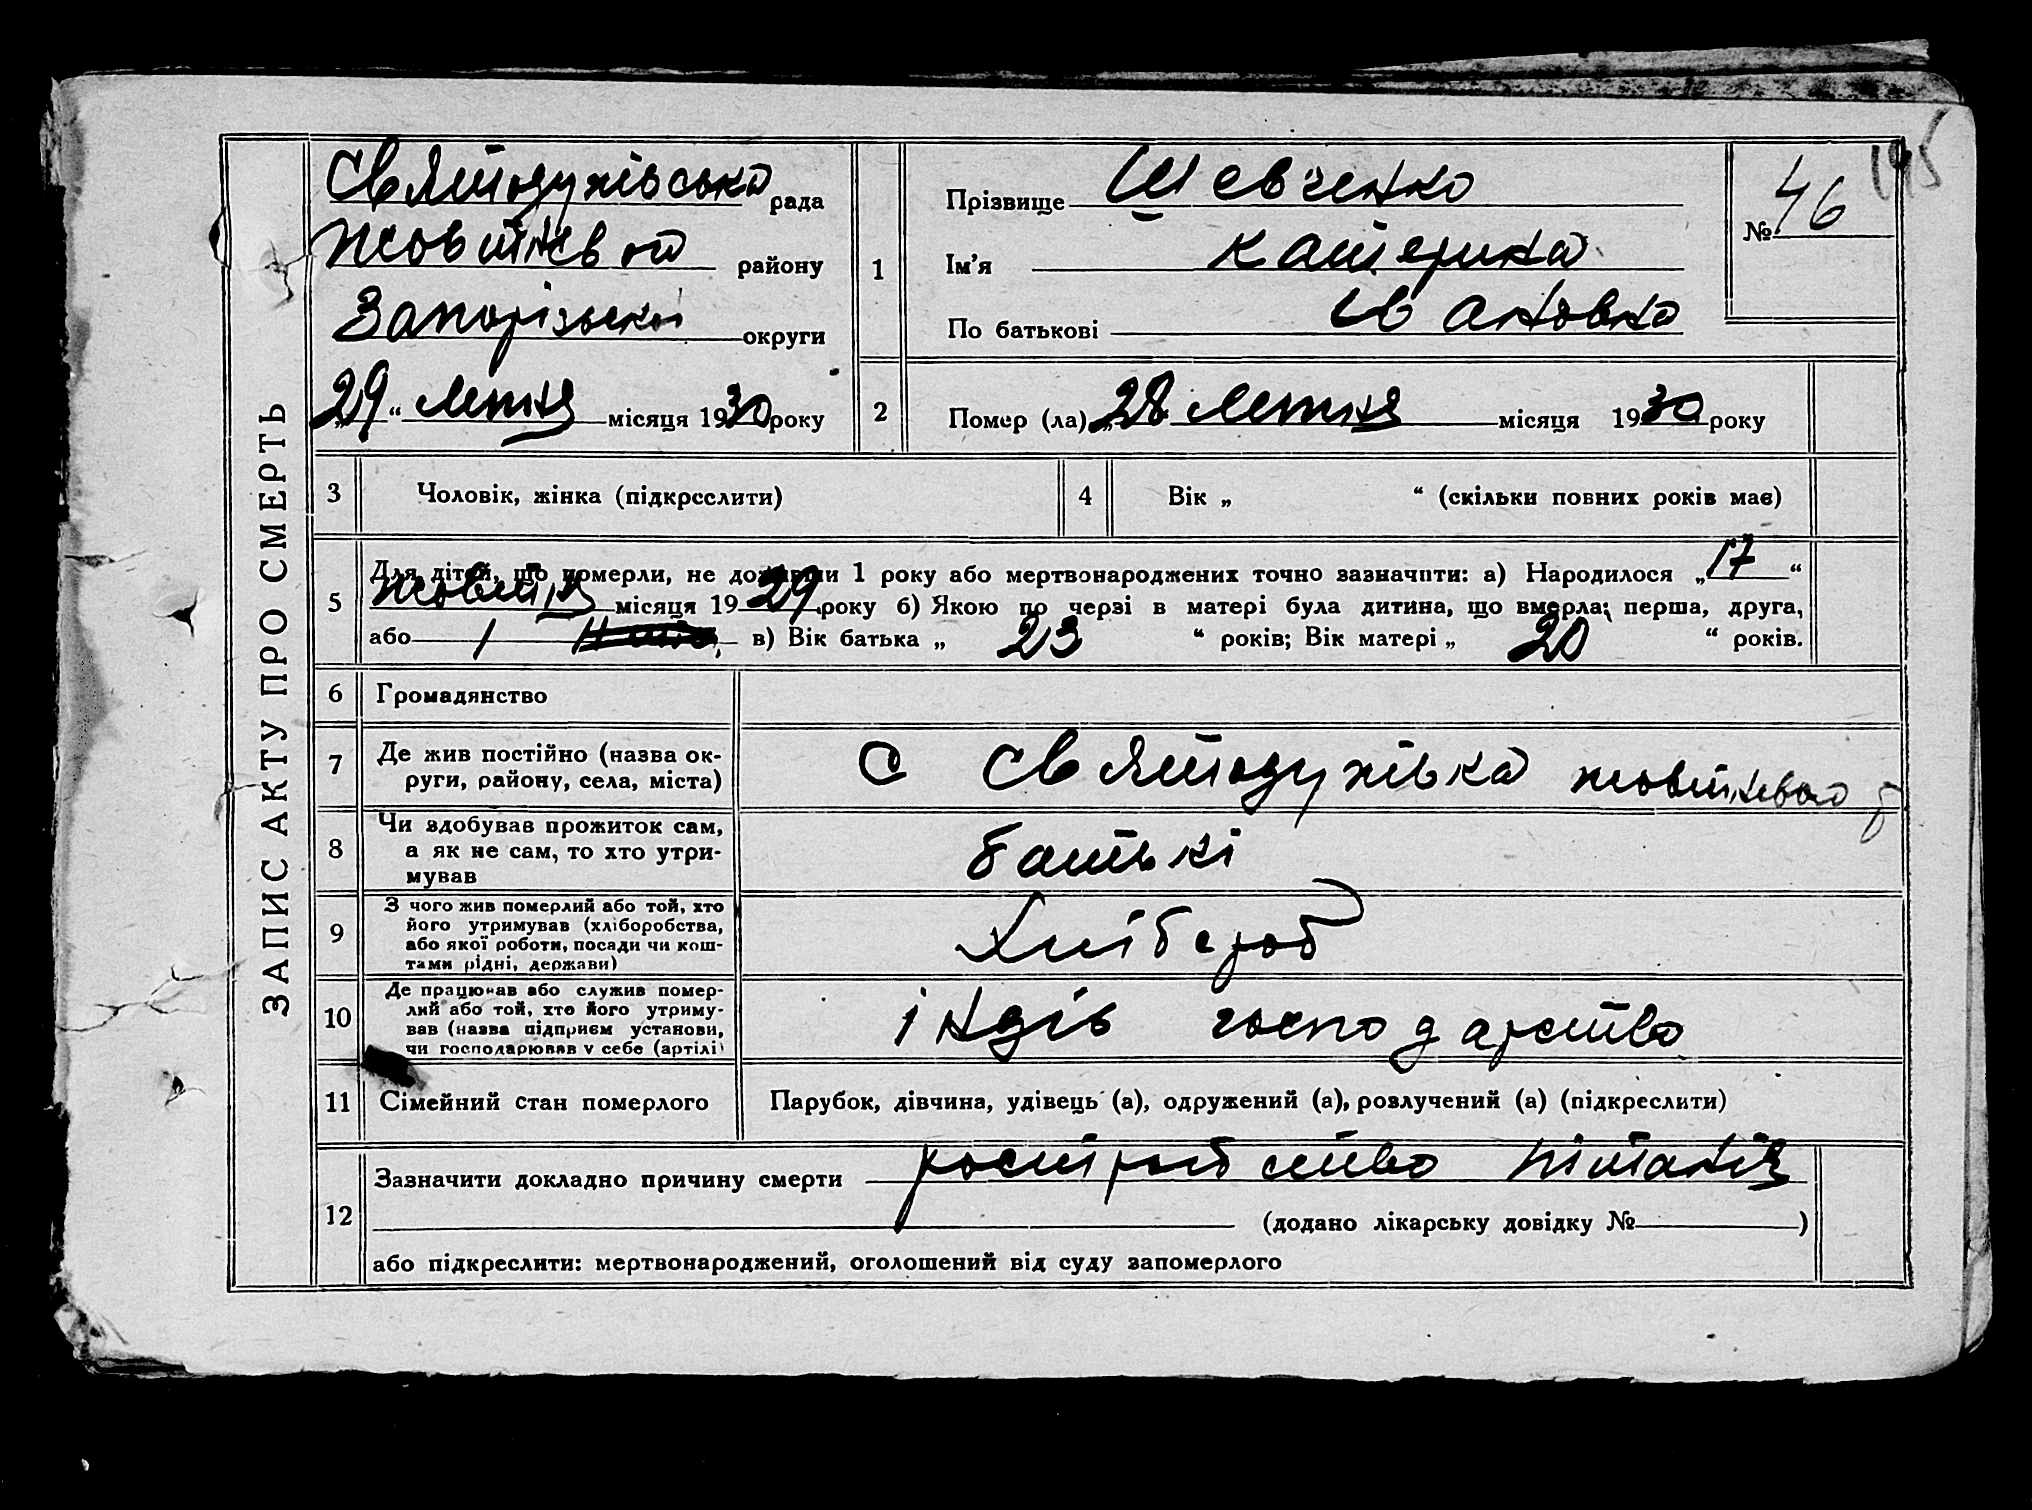 ЗАПИС АКТУ ПРО СМЕРТЬ
Святодухівська рада
Жовтневой району
Запорізькой округи
„29“ летня місяця 1930 року
1
Прізвище Шевченко
Ім'я Катерина
По батькові Ивановна
№ 46
145
2
Помер (ла) „28 летня місяця 1930 року
3 Чоловік, жінка (підкреслити)
4 Вік „ “ (скільки повних років має)
5 Для дітей, що померли, не доживши 1 року або мертвонароджених точно зазначити: а) Народилося „17“
жовтня місяця 1929 року б) Якою по черзі в матері була дитина, що вмерла; перша, друга,
або 1 в) Вік батька „ 23 “ років; Вік матері „ 20 “ років.
6 Громадянство
7 Де жив постійно (назва ок-
руги, району, села, міста)
с Святодухівка жовтневого р
8 Чи здобував прожиток сам,
а як не сам, то хто утри-
мував
батькі
9 З чого жив померлий або той, хто
його утримував (хліборобства,
або якої роботи, посади чи кош-
тами рідні, держави)
Хлібороб
10 Де працював або служив помер-
лий або той, хто його утриму-
вав (назва підприєм установи,
чи господарював у себе (артілі)
індів господарство
11 Сімейний стан померлого
Парубок, дівчина, удівець (а), одружений (а), розлучений (а) (підкреслити)
12 Зазначити докладно причину смерти
(додано лікарську довідку № )
або підкреслити: мертвонароджений, оголошений від суду запомерлого